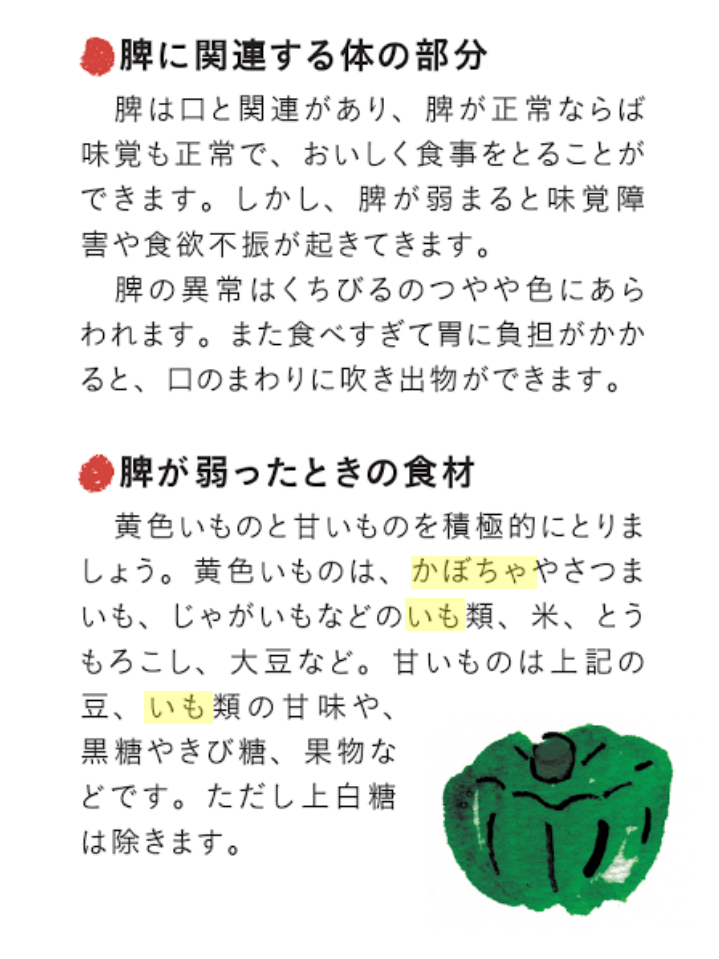 脾に関連する体の部分
脾は口と関連があり、脾が正常ならば
味覚も正常で、おいしく食事をとることが
できます。しかし、脾が弱まると味覚障
害や食欲不振が起きてきます。
脾の異常はくちびるのつやや色にあら
われます。また食べすぎて胃に負担がかか
ると、口のまわりに吹き出物ができます。
脾が弱ったときの食材
黄色いものと甘いものを積極的にとりま
しょう。黄色いものは、かぼちゃやさつま
いも、じゃがいもなどのいも類、米、とう
もろこし、大豆など。甘いものは上記の
豆、いも類の甘味や、
黒糖やきび糖、果物な
どです。ただし上白糖
は除きます。